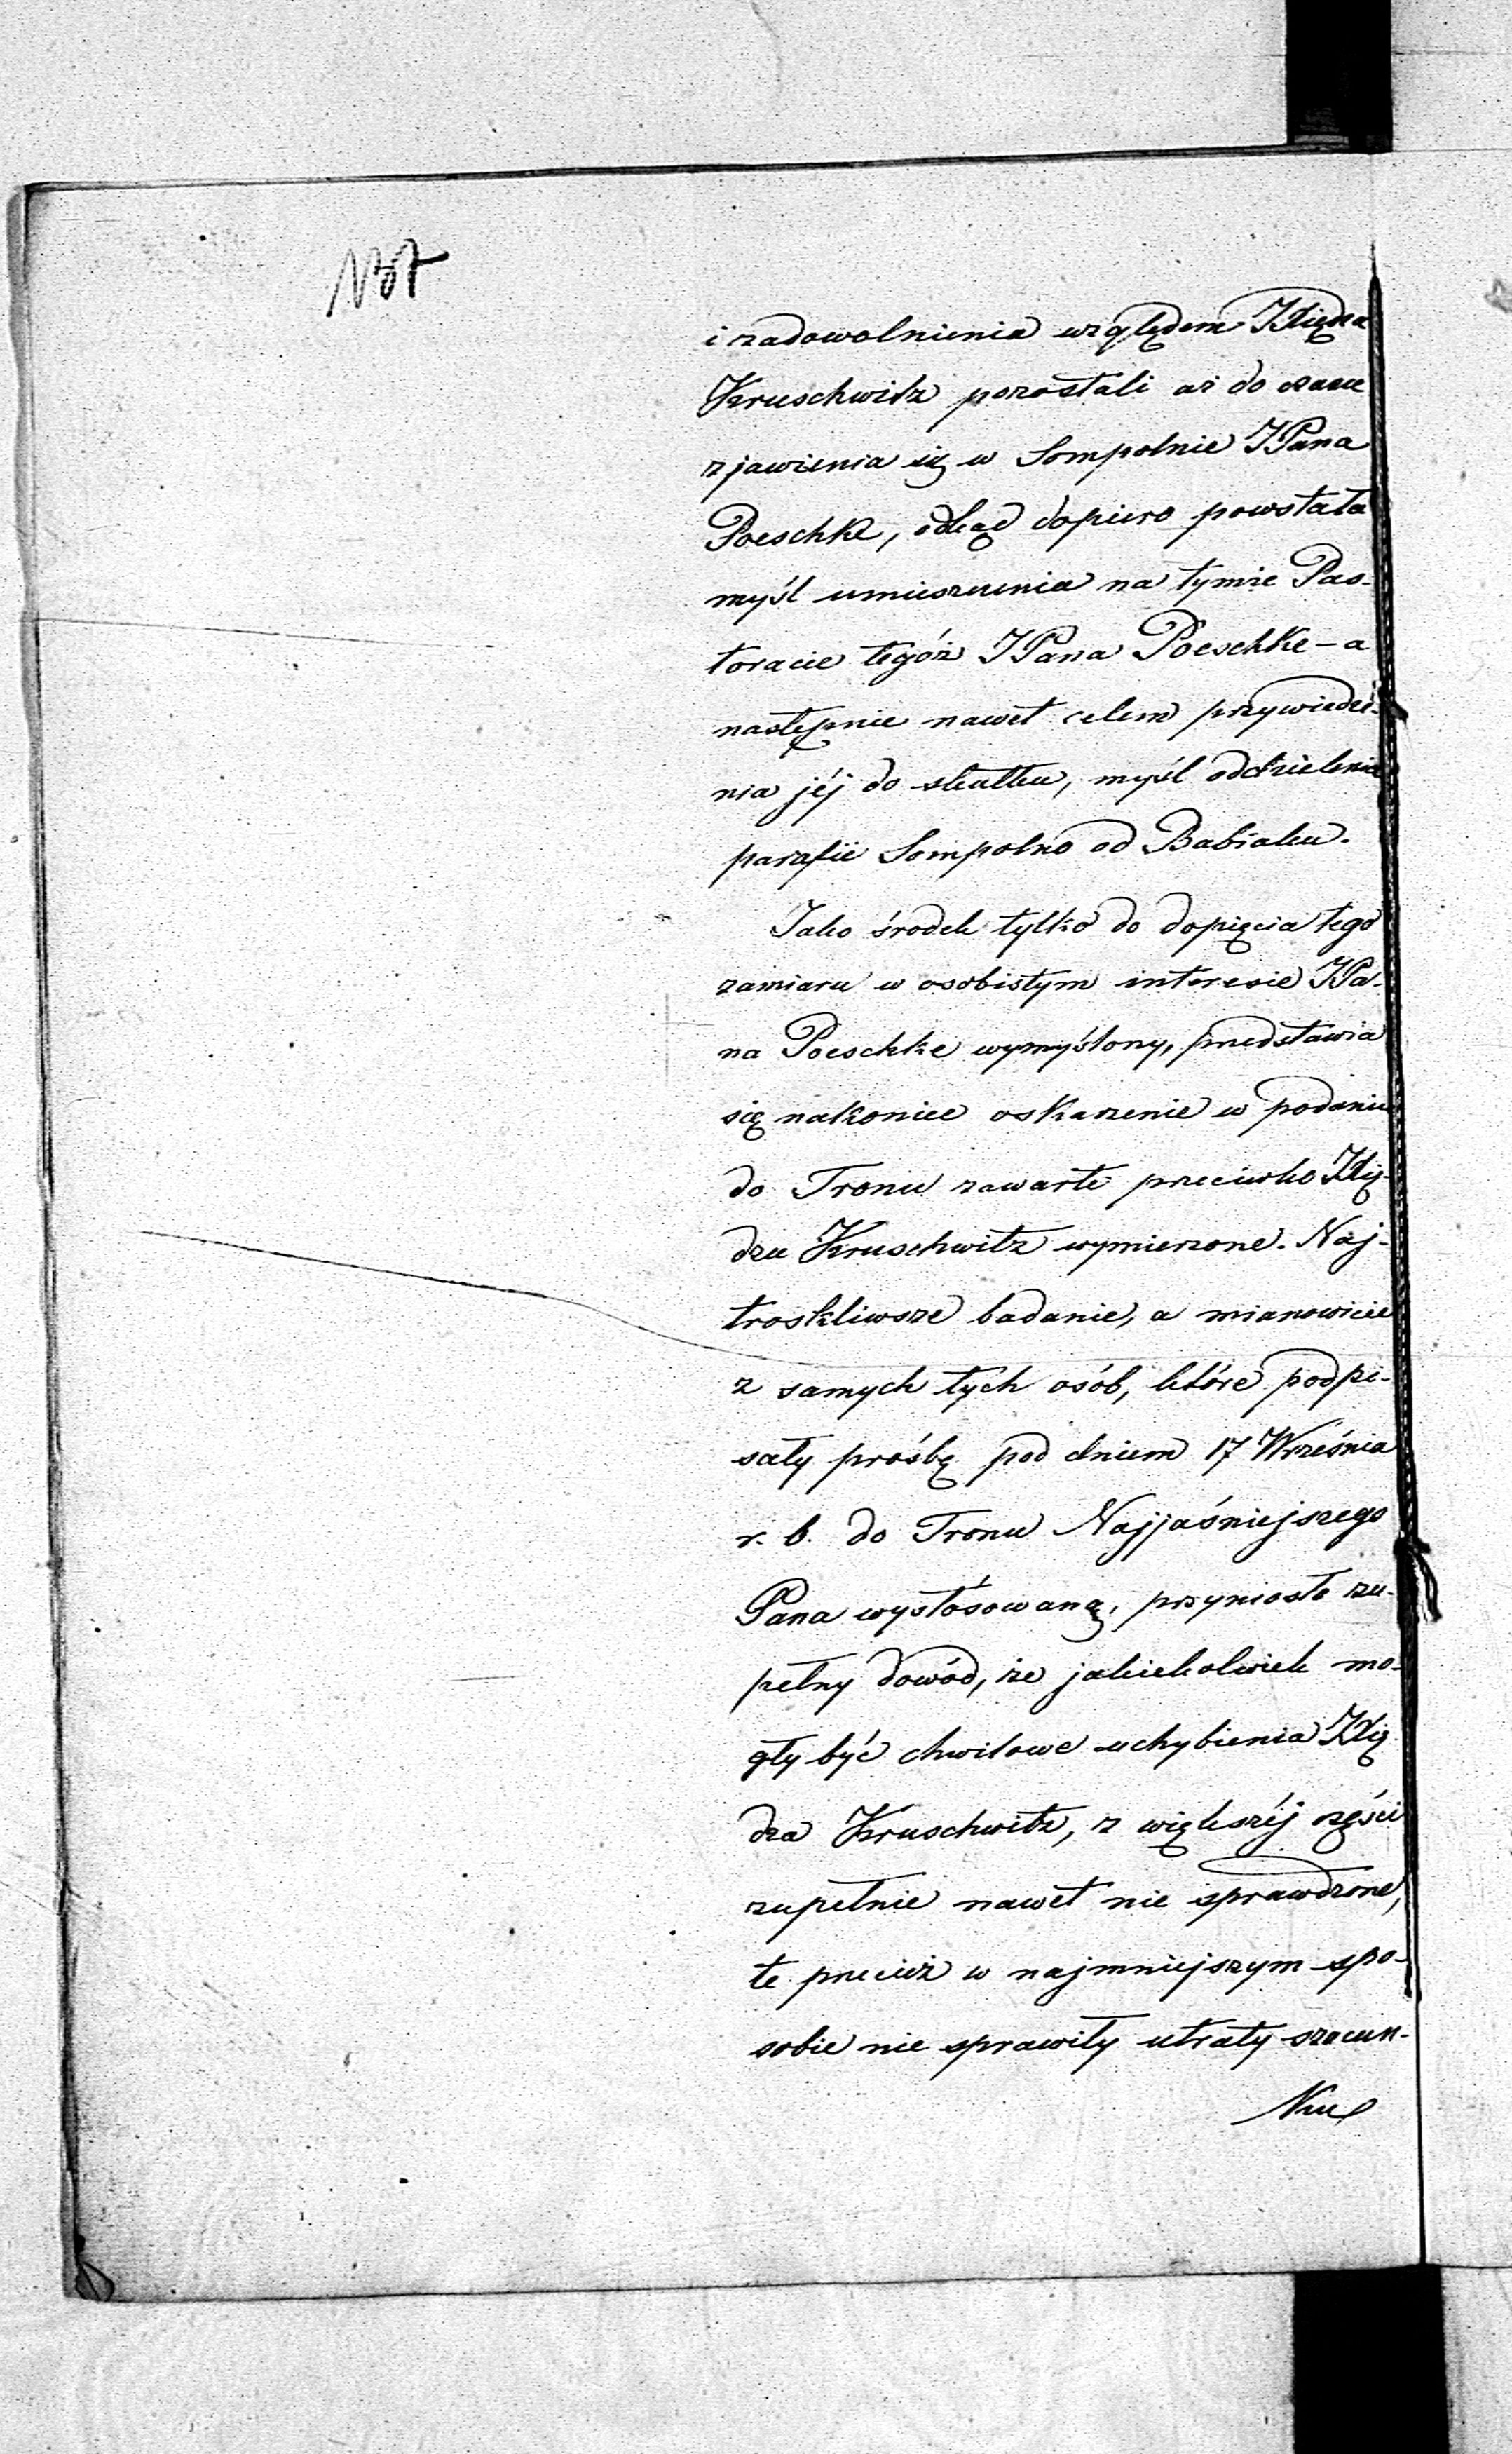 137
i zadowolnienia względem JXiędza
Kruschwitz pozostali aż do czasu
zjawienia się w Sompolnie JPana
Poeschke, odtąd dopiero powstała
myśl umieszczenia na tymże Pas-
toracie tegóż JPana Poeschke – a
następnie nawet celem przywiedze-
nia jéj do skutku, myśl oddzielenia
parafii Sompolno od Babiaku.
Jako środek tylko do dopięcia tego
zamiaru w osobistym interesie JPa-
na Poeschke wymyślony, przedstawia
się nakoniec oskarzenie w podaniu
do Tronu zawarte przeciwko JXię-
dzu Kruschwitz wymierzone. Naj-
troskliwsze badanie, a mianowicie
z samych tych osób, które podpi-
sały prośbę pod dniem 17 Września
r. b. do Tronu Najjaśniejszego
Pana wystósowaną, przyniosło zu-
pełny dowód, że jakiekolwiek mo-
gły być chwilowe uchybienia JXię-
dza Kruschwitz, z większéj części
zupełnie nawet nie sprawdzone,
te przecież w najmniejszym spo-
sobie nie sprawiły utraty szacun-
ku